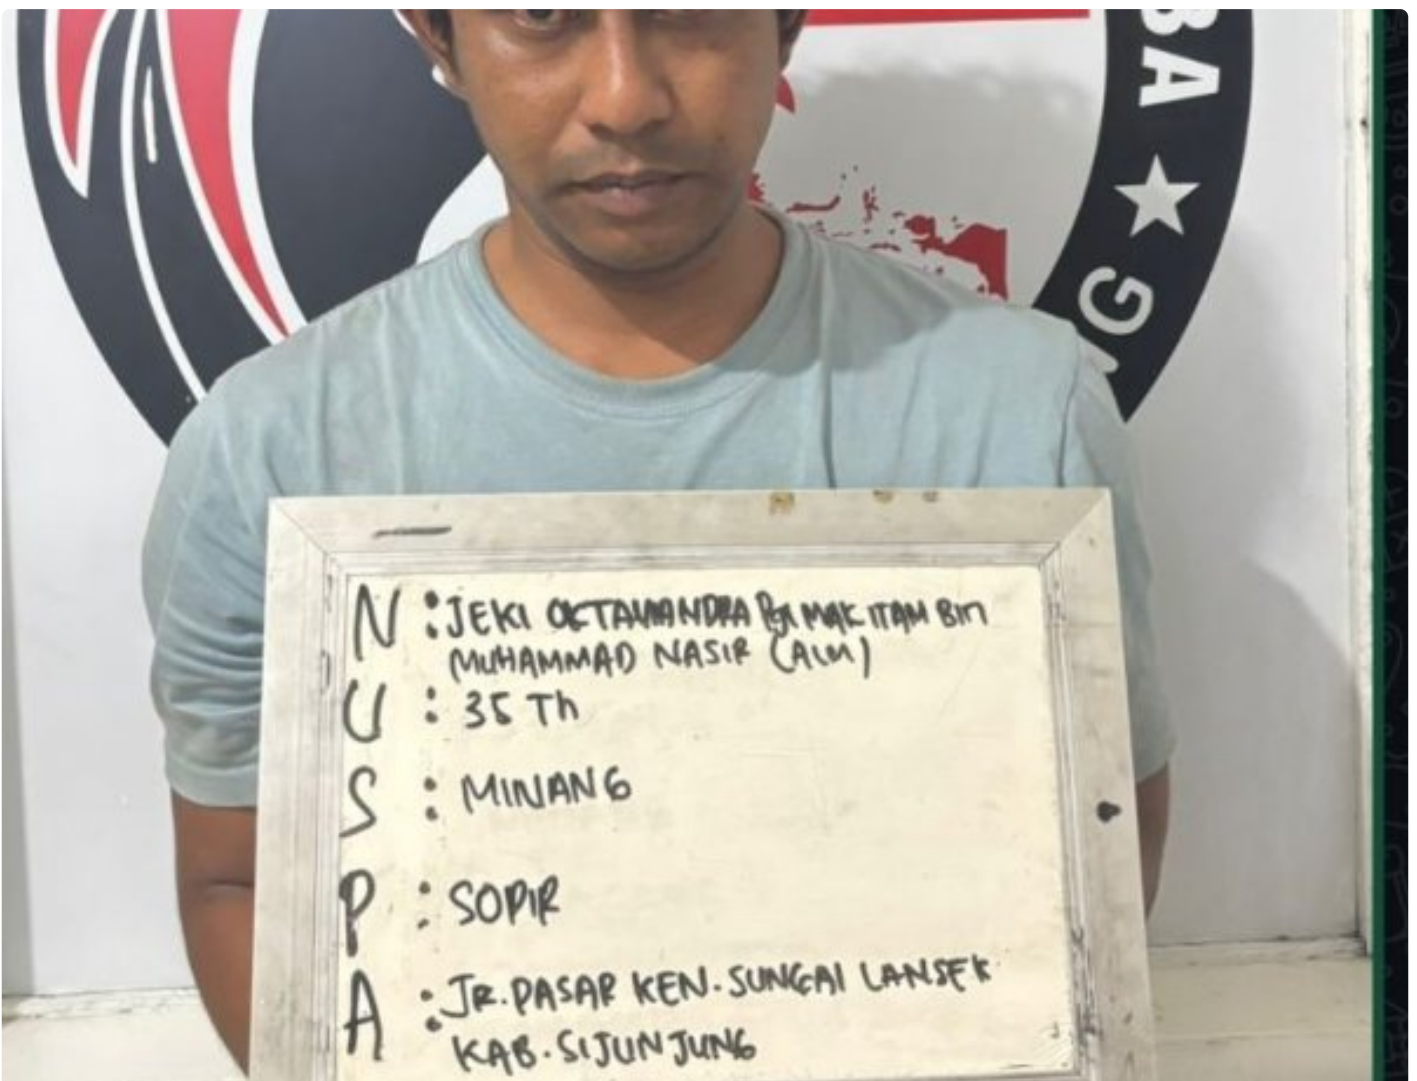 BA ★
G
N : JEKI OKTAVIANDRA Pgl MAK ITAM BIN
MUHAMMAD NASIR (ALM)
U : 35 Th
S : MINANG
P : SOPIR
A : JR. PASAR KEN. SUNGAI LANSEK
KAB. SIJUNJUNG